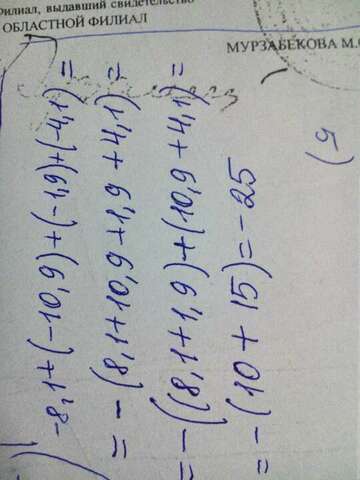 Филиал, выдавший свидетельство
ОБЛАСТНОЙ ФИЛИАЛ
МУРЗАБЕКОВА М.
1) -8,1+(-10,9)+(-1,9)+(-4,1)=
= -(8,1+10,9+1,9+4,1)=
= -((8,1+1,9)+(10,9+4,1)=
= -(10+15)=-25
5)